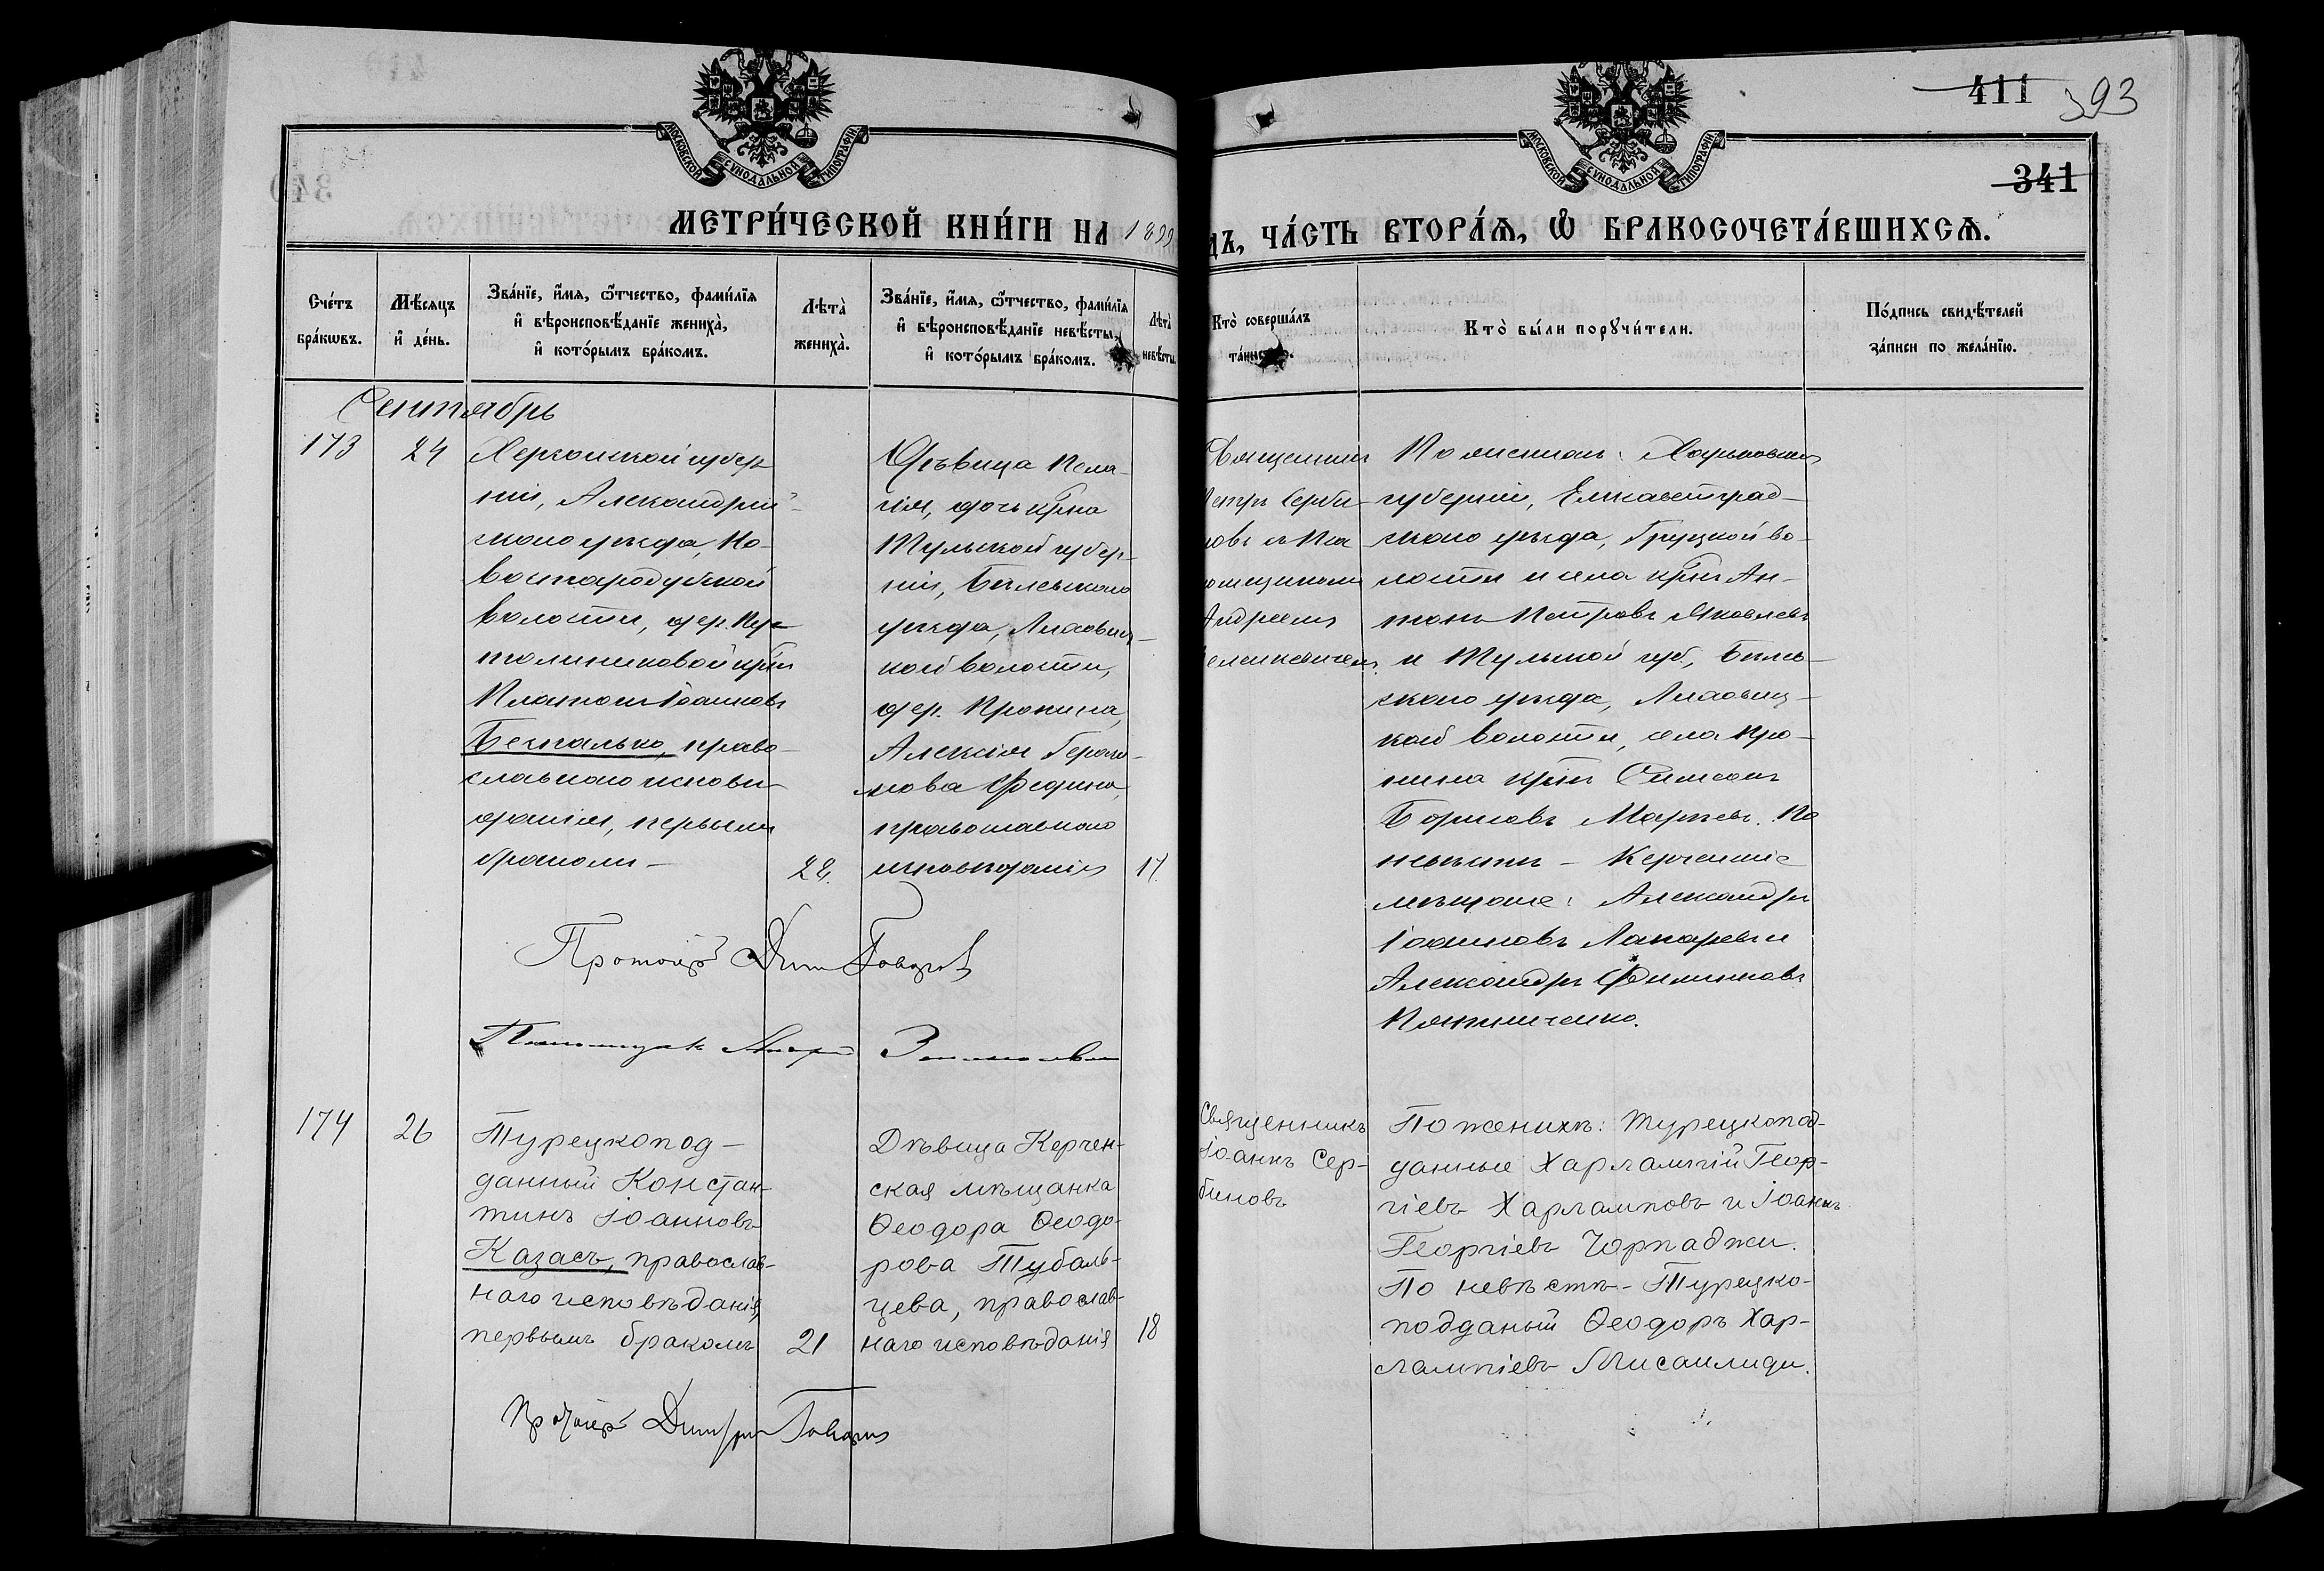 411 393
341
МОСКОВСКОЙ СУНОДАЛЬНОЙ ТИПОГРАФІИ
МОСКОВСКОЙ СУНОДАЛЬНОЙ ТИПОГРАФІИ
МЕТРИ́ЧЕСКОЙ КНИ́ГИ НА 1899
ДЪ, ЧА́СТЬ ВТОРА́Ѧ, Ѽ БРАКОСОЧЕТА́ВШИХСѦ.
Сче́тъ
бра́кѡвъ.
Мѣ́сяцъ
и҆ де́нь.
Зва́нїе, и҆́мя, ѻ҆́тчество, фами́лїя
и҆ вѣроисповѣ́данїе жениха̀,
и҆ кото́рымъ бра́комъ.
Лѣта̀
жениха̀.
Зва́нїе, и҆́мя, ѻ҆́тчество, фами́лїя
и҆ вѣроисповѣ́данїе невѣ́сты,
и҆ кото́рымъ бра́комъ.
Лѣта̀
невѣ́сты
Кто̀ соверша́лъ
Кто̀ бы́ли порꙋчи́тели.
По́дпись свидѣ́телей
за́писи по жела́нїю.
Сентябрь
173
24
Херсонской губер
ніи, Александрій-
скаго уѣзда, Но-
востародубской
волости, дер.
кр̃нъ
Платонъ Іоанновъ
Безпалько, право-
славнаго исповѣ-
данія, первымъ
бракомъ
22.
Дѣвица Пела-
гія, дочь кр̃на
Тульской губер-
ніи, Бѣлевскаго
уѣзда,
кой волости,
дер. Пронина,
Алексія Гераси-
мова Федина,
православнаго
исповѣданія
17.
Священникъ
Петръ Серби-
новъ съ Пса-
ломщикомъ
Андреемъ
По женихѣ: Херсонской
губерніи, Елисаветград-
скаго уѣзда, Грузской во-
лости и села кр̃нъ Ан-
тонъ Петровъ Яковлевъ
и Тульской губ., Бѣлев-
скаго уѣзда,
кой волости, села Про-
нина кр̃нъ Симеонъ
Борисовъ. По
невѣстѣ - Керченскіе
мѣщане: Александръ
Іоанновъ Лапаревъ и
Александръ Филипповъ
Протоіер Дим
174
26
Турецкопод-
данный Констан-
тинъ Іоанновъ
Казасъ, православ-
наго исповѣданія,
первымъ бракомъ
21
Дѣвица Керчен-
ская мѣщанка
Ѳеодора Ѳеодо-
рова Тубаль-
цева, православ-
наго исповѣданія
18
Священникъ
Іоаннъ Сер-
биновъ
По женихѣ: турецкопод-
данные Харлампій Геор-
гіевъ Харламповъ и Іоаннъ
Георгіевъ Чорпаджи.
По невѣстѣ - Турецко-
подданый Ѳеодоръ Хар-
лампіевъ Мисаилиди.
Протоіер Димтри